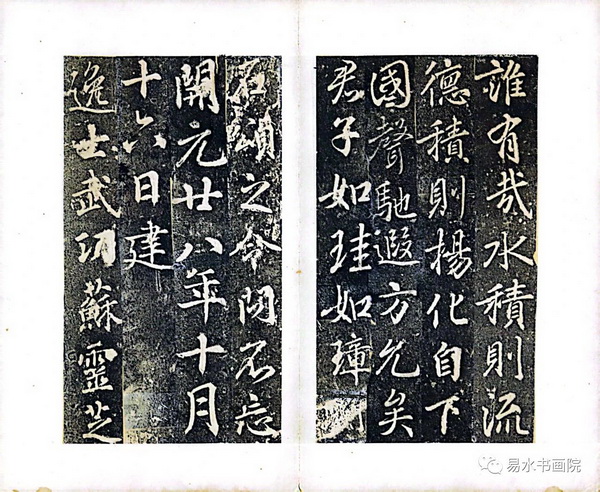 誰有哉水積則流
德積則楊化自下
國聲馳遐方允矣
君子如珪如璋
石頌之令問不忘
開元廿八年十月
十六日建
逸士武功蘇靈芝
易水书画院